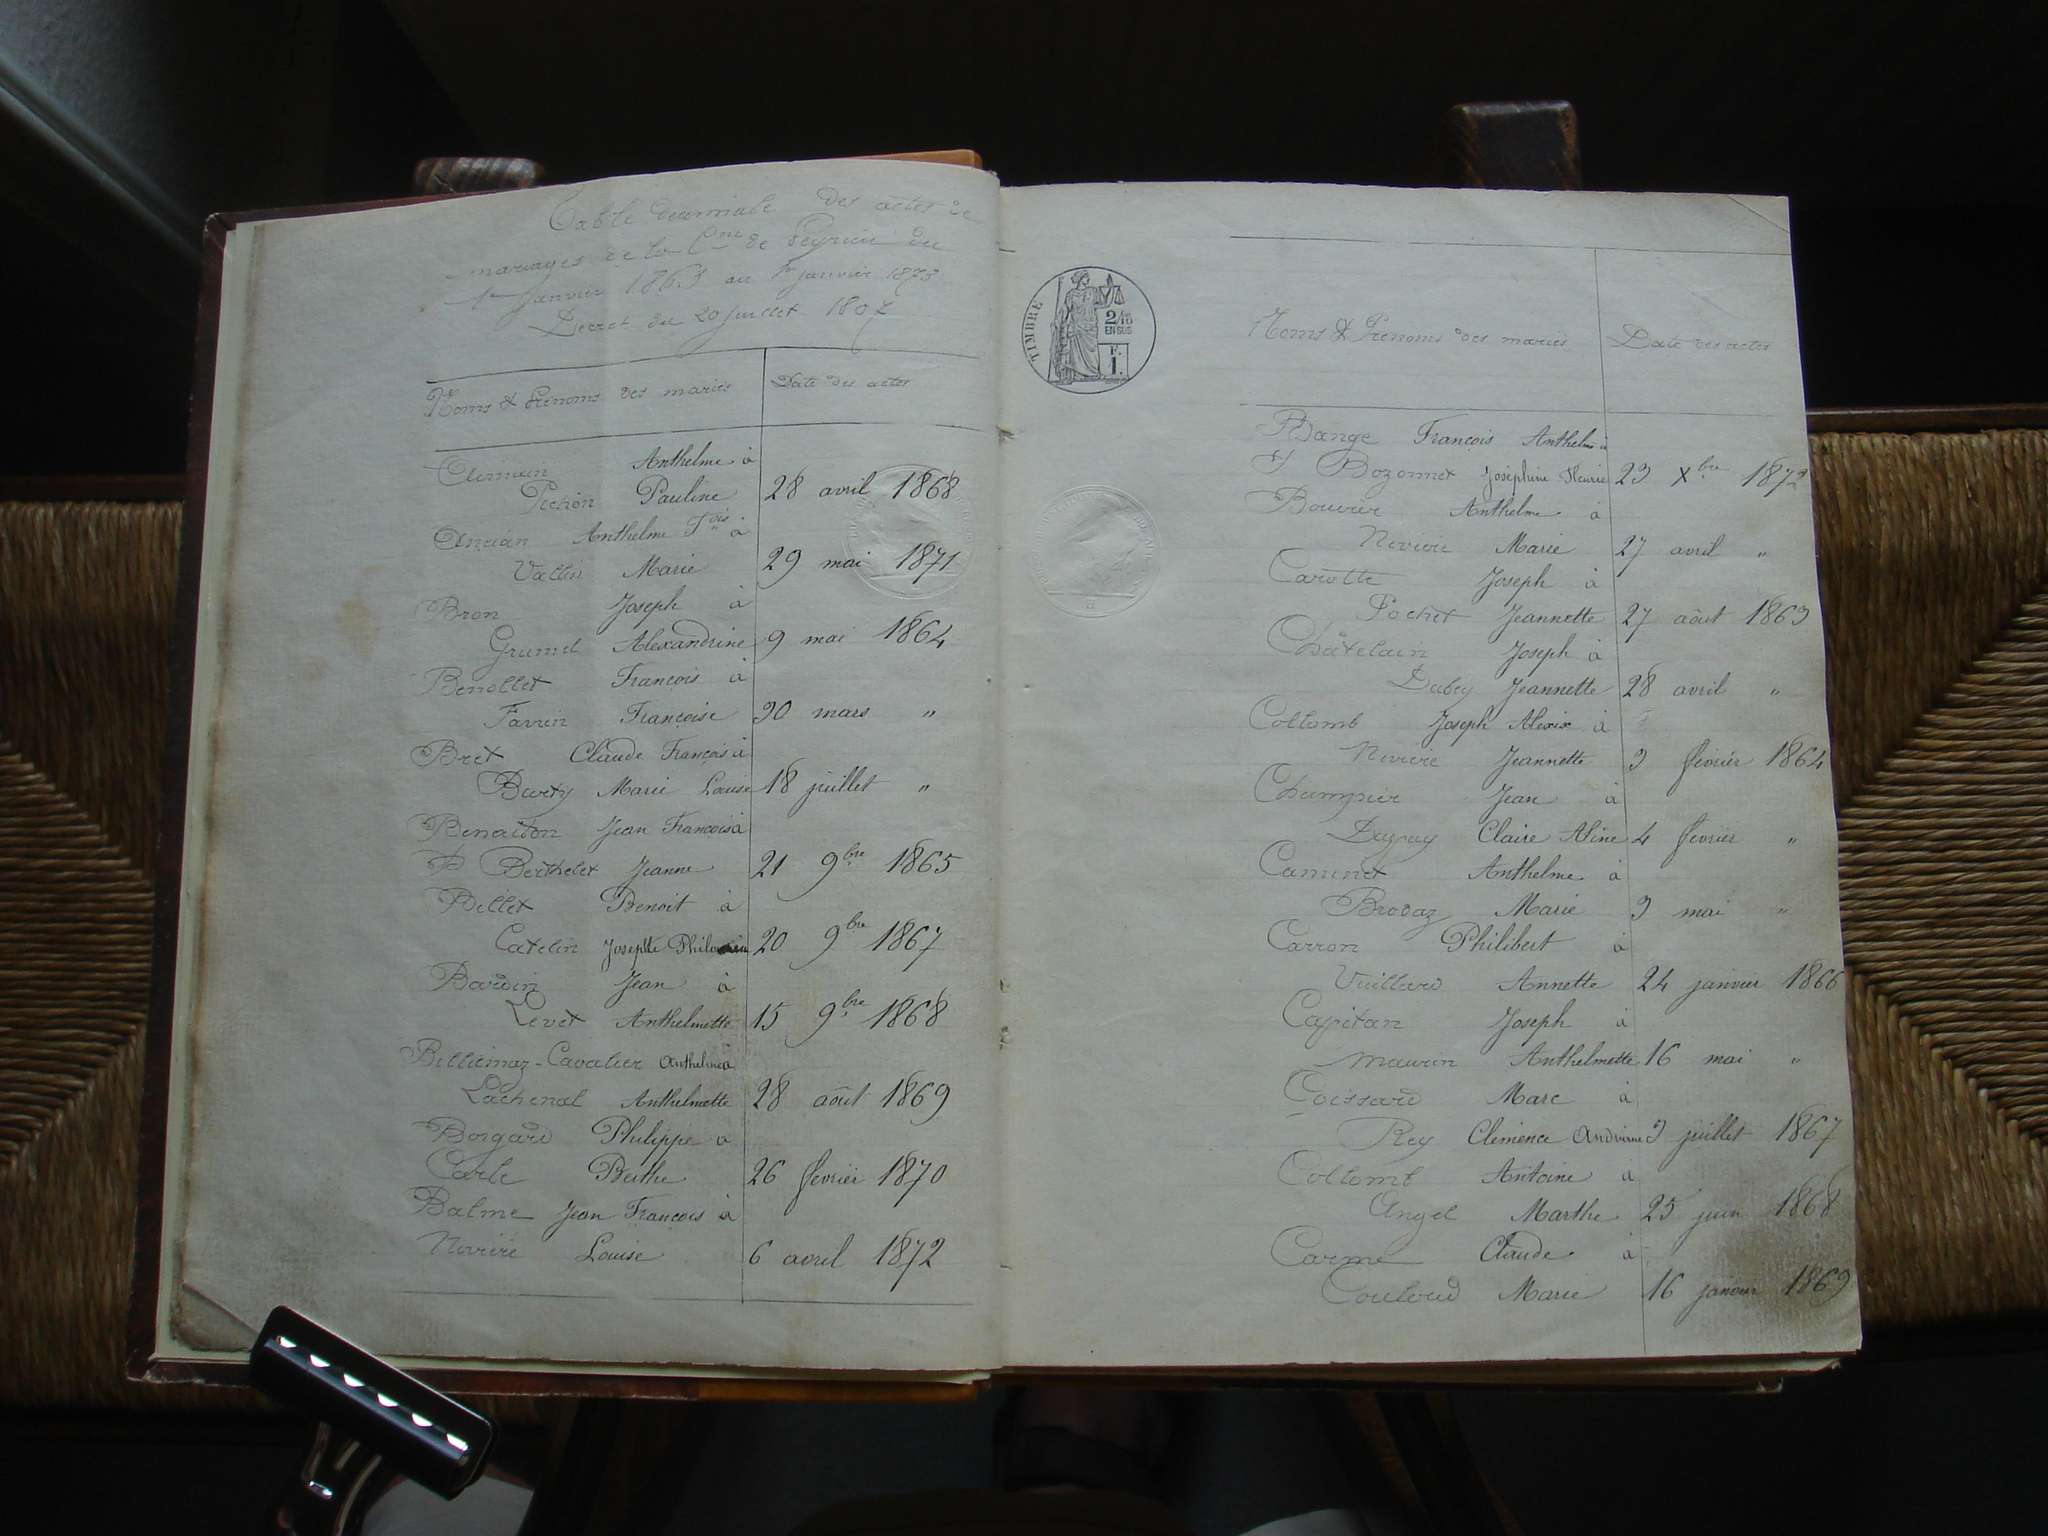 Table décennale des actes de
mariages de la Cne de Peyrieu du
1er janvier 1863 au 1er janvier 1873
Décret du 20 juillet 1807
Noms & Prénoms des mariés Date des actes
Anthelme à
Pochon Pauline 28 avril 1868
Ancian Anthelme Fois à
Vallin Marie 29 mai 1871
Bron Joseph à
Grumel Alexandrine 9 mai 1864
Benollet François à
Favrin Françoise 30 mars "
Bret Claude François à
Burty Marie Louise 18 juillet "
Benaiton Jean François à
Berthelet Jeanne 21 9bre 1865
Billet Benoit à
Catelin Josephte 20 9bre 1867
Bardin Jean à
Levet Anthelmette 15 9bre 1868
Billiemaz-Cavalier Anthelme à
Lachenal Anthelmette 28 août 1869
Borgard Philippe à
Carle Berthe 26 février 1870
Balme Jean François à
Nivière Louise 6 avril 1872
TIMBRE
2/10
EN SUS
F.
1.
Noms & Prénoms des mariés Date des actes
Bange François Anthelme à
Bozonnet Joséphine Fleurie 23 Xbre 1872
Bouvier Anthelme à
Nivière Marie 27 avril "
Carotte Joseph à
Pochet Jeannette 27 août 1863
Châtelain Joseph à
Dubey Jeannette 28 avril "
Collomb Joseph Alexix à
Nivière Jeannette 3 février 1864
Champier Jean à
Dupuy Claire Aline 4 février "
Caminet Anthelme à
Brodaz Marie 3 mai "
Carron Philibert à
Vuillard Annette 24 janvier 1866
Capitan Joseph à
Maurin Anthelmette 16 mai "
Coissard Marc à
Rey Clémence 3 juillet 1867
Collomb Antoine à
Angel Marthe 25 juin 1868
Carme Claude à
Couloud Marie 16 janvier 1869